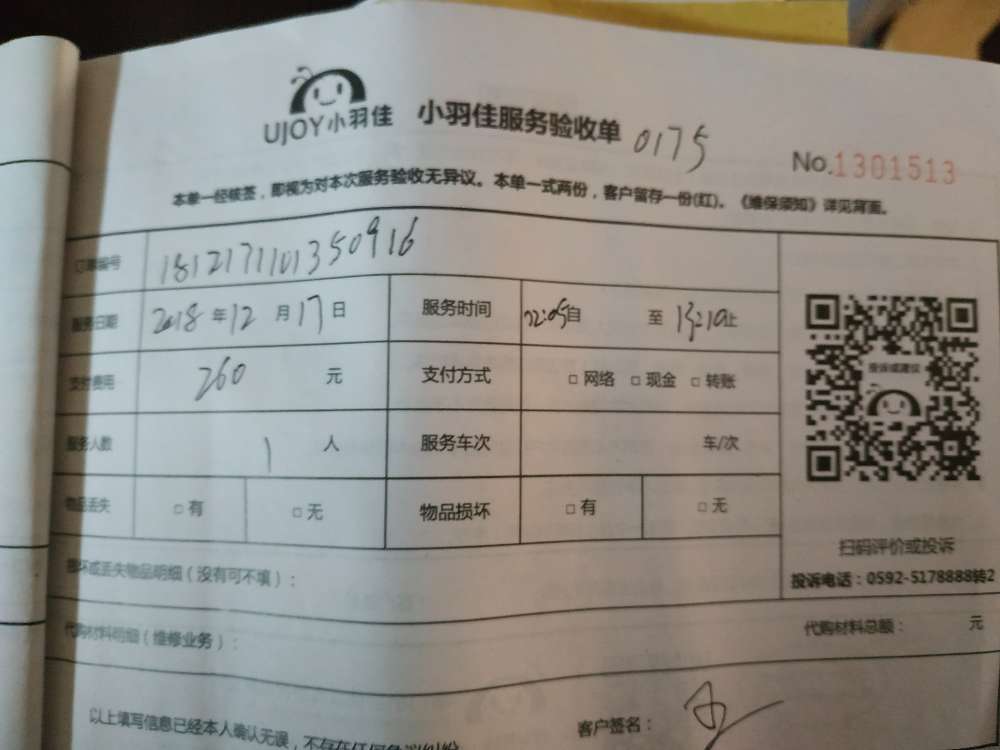 UJOY小羽佳 小羽佳服务验收单 0175
No.1301513
本单一经核签，即视为对本次服务验收无异议。本单一式两份，客户留存一份(红)。《维保须知》详见背面。
订单编号 1812171101350916
服务日期 2018年12月17日 服务时间 12:05自 至 13:10止
支付费用 260 元 支付方式 □网络 □现金 □转账
服务人数 1 人 服务车次 车/次
物品丢失 □有 □无 物品损坏 □有 □无
投诉或建议
扫码评价或投诉
投诉电话：0592-5178888转2
损坏或丢失物品明细（没有可不填）：
代购材料明细（维修业务）： 代购材料总额： 元
以上填写信息已经本人确认无误，不存在任何
客户签名：